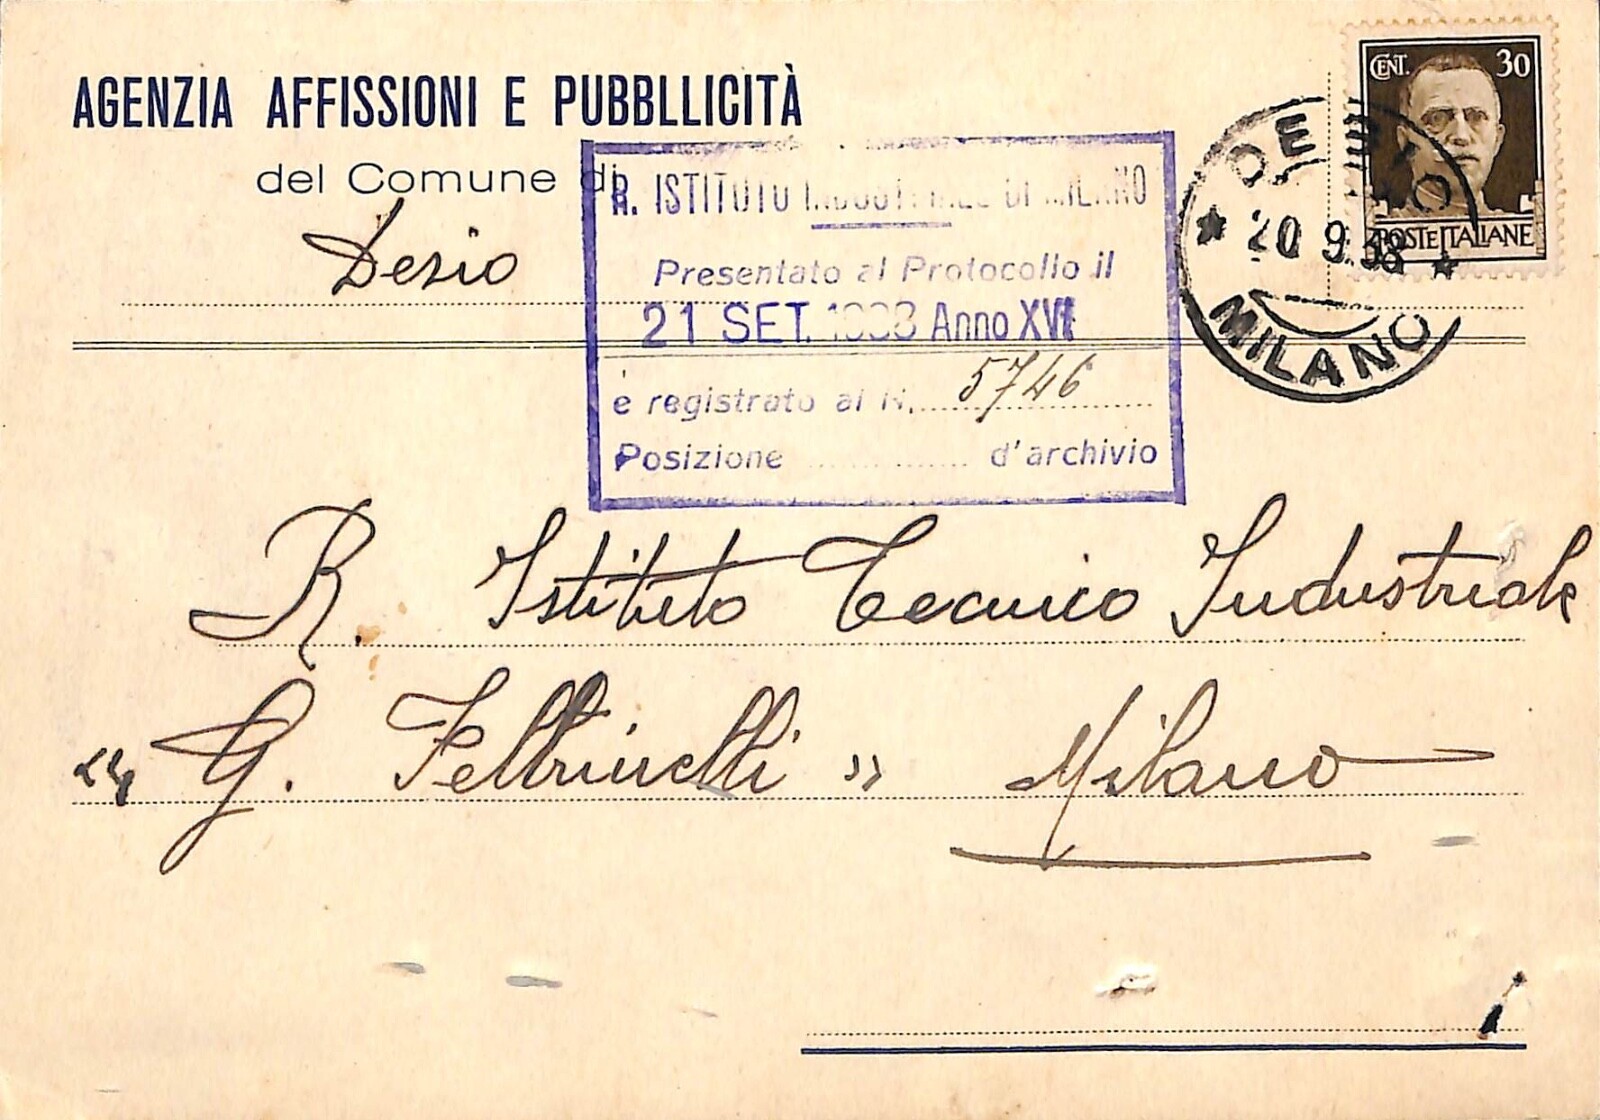 AGENZIA AFFISSIONI E PUBBLLICITÀ
del Comune di
Desio
CENT. 30
POSTE ITALIANE
DESIO
20 9.38
MILANO
R. ISTITUTO INDUSTRIALE DI MILANO
Presentato al Protocollo il
21 SET. 1938 Anno XVI
è registrato al N. 5746
Posizione d'archivio
R. Istituto Tecnico Industriale
“ G. Feltrinelli ” Milano